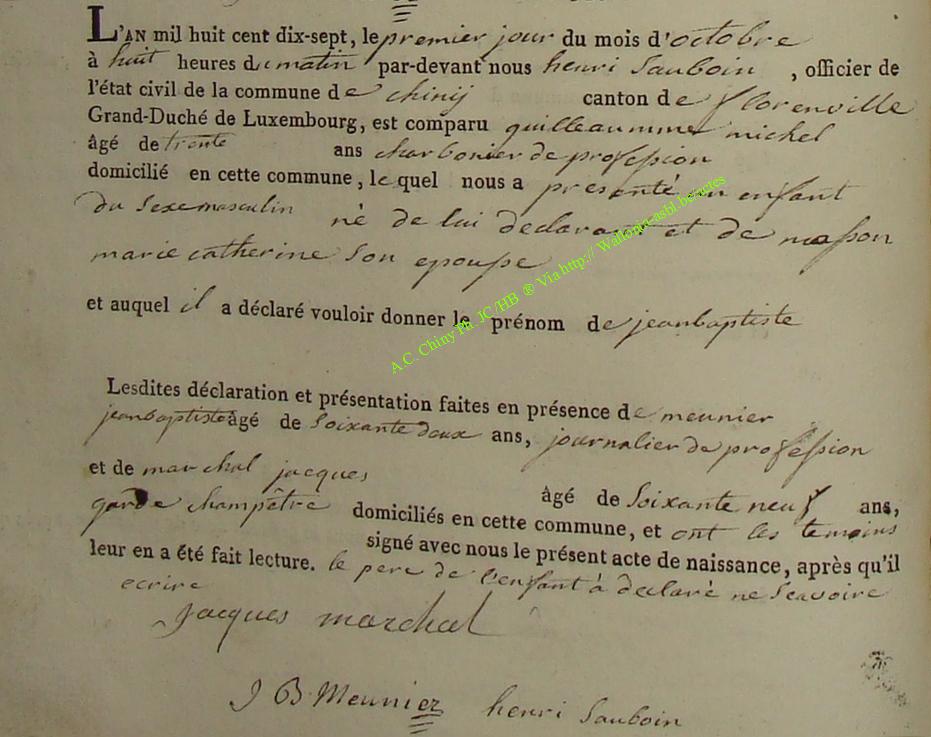 L'AN mil huit cent dix-sept, le premier jour du mois d'octobre
à huit heures du matin par-devant nous henri Sauboin , officier de
l'état civil de la commune de chinij canton de florenville
Grand-Duché de Luxembourg, est comparu guilleaumme michel
âgé de trente ans charbonier de profession
domicilié en cette commune, le quel nous a présenté un enfant
du Sexe masculin né de lui declarant et de masson
marie catherine Son epouse
et auquel il a déclaré vouloir donner le prénom de jeanbaptiste
A.C. Chiny Ph. JC/HB ® Via http:// Wallonia-asbl.be/actes
Lesdites déclaration et présentation faites en présence de meunier
jeanbaptiste âgé de Soixante deux ans, journalier de profession
et de marchal jacques
âgé de Soixante neuf ans,
garde champêtre domiciliés en cette commune, et ont les temoins
signé avec nous le présent acte de naissance, après qu'il
leur en a été fait lecture. le pere de l'enfant à declaré ne Scavoire
ecrire
Jacques marchal
J B Meunier henri Sauboin